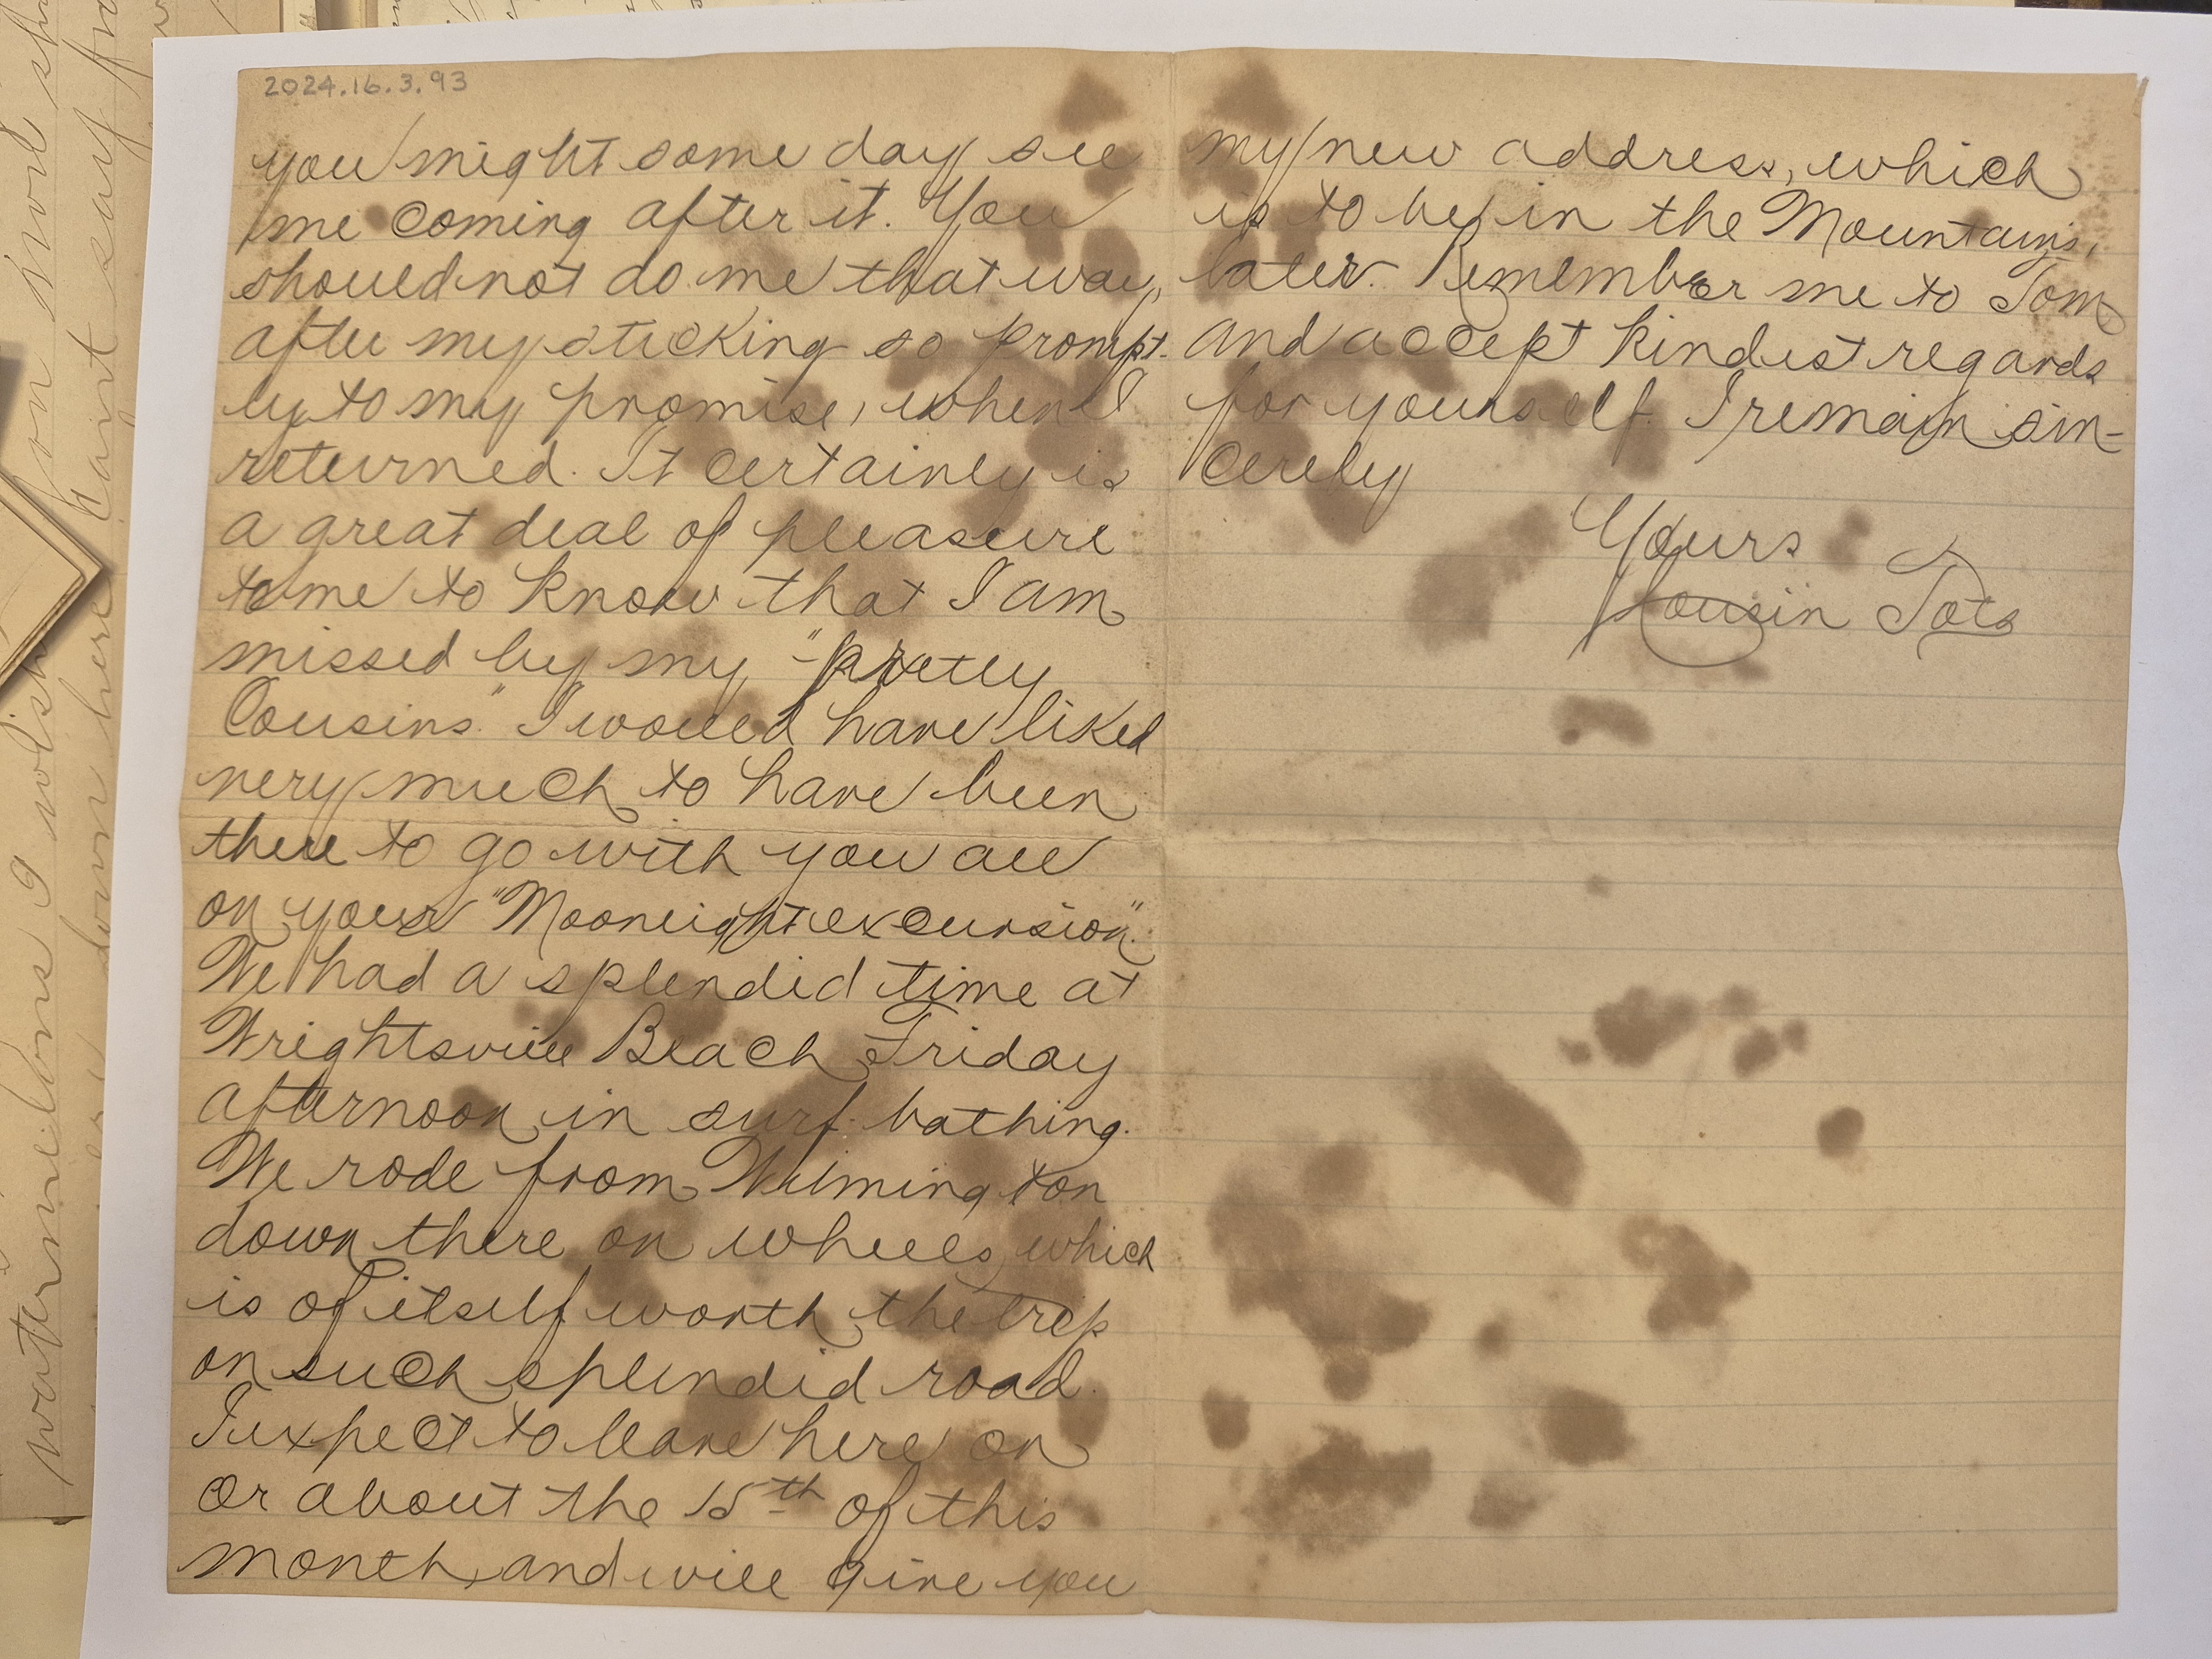 2024.16.3.93
you might some day see
me coming after it. You
should not do me that way,
after my sticking so prompt-
ly to my promise, when I
returned. It certainly is
a great deal of pleasure
to me to know that I am
missed by my "pretty
Cousins." I would have liked
very much to have been
there to go with you all
on your "Moonlight excursion".
We had a splendid time at
Wrightsville Beach Friday
afternoon in surf bathing.
We rode from Wilmington
down there on wheels, which
is of itself worth the trip
on such splendid road.
I expect to leave here on
or about the 15th of this
month, and will give you
my new address, which
is to be in the Mountains,
later. Remember me to Tom
and accept kindest regards
for yourself. I remain sin-
cerely
Yours
Cousin Tots
watermelons I wish